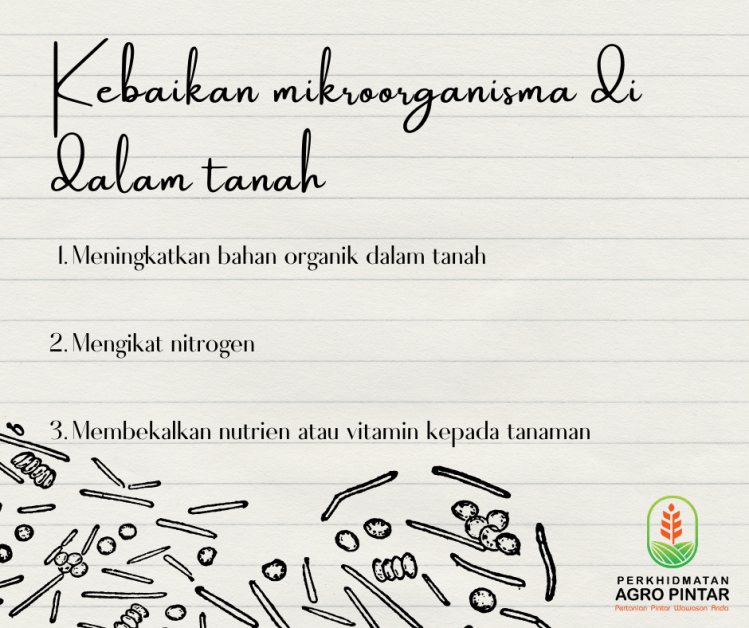 Kebaikan mikroorganisma di
dalam tanah
1. Meningkatkan bahan organik dalam tanah
2. Mengikat nitrogen
3. Membekalkan nutrien atau vitamin kepada tanaman
PERKHIDMATAN
AGRO PINTAR
Pertanian Pintar Wawasan Anda